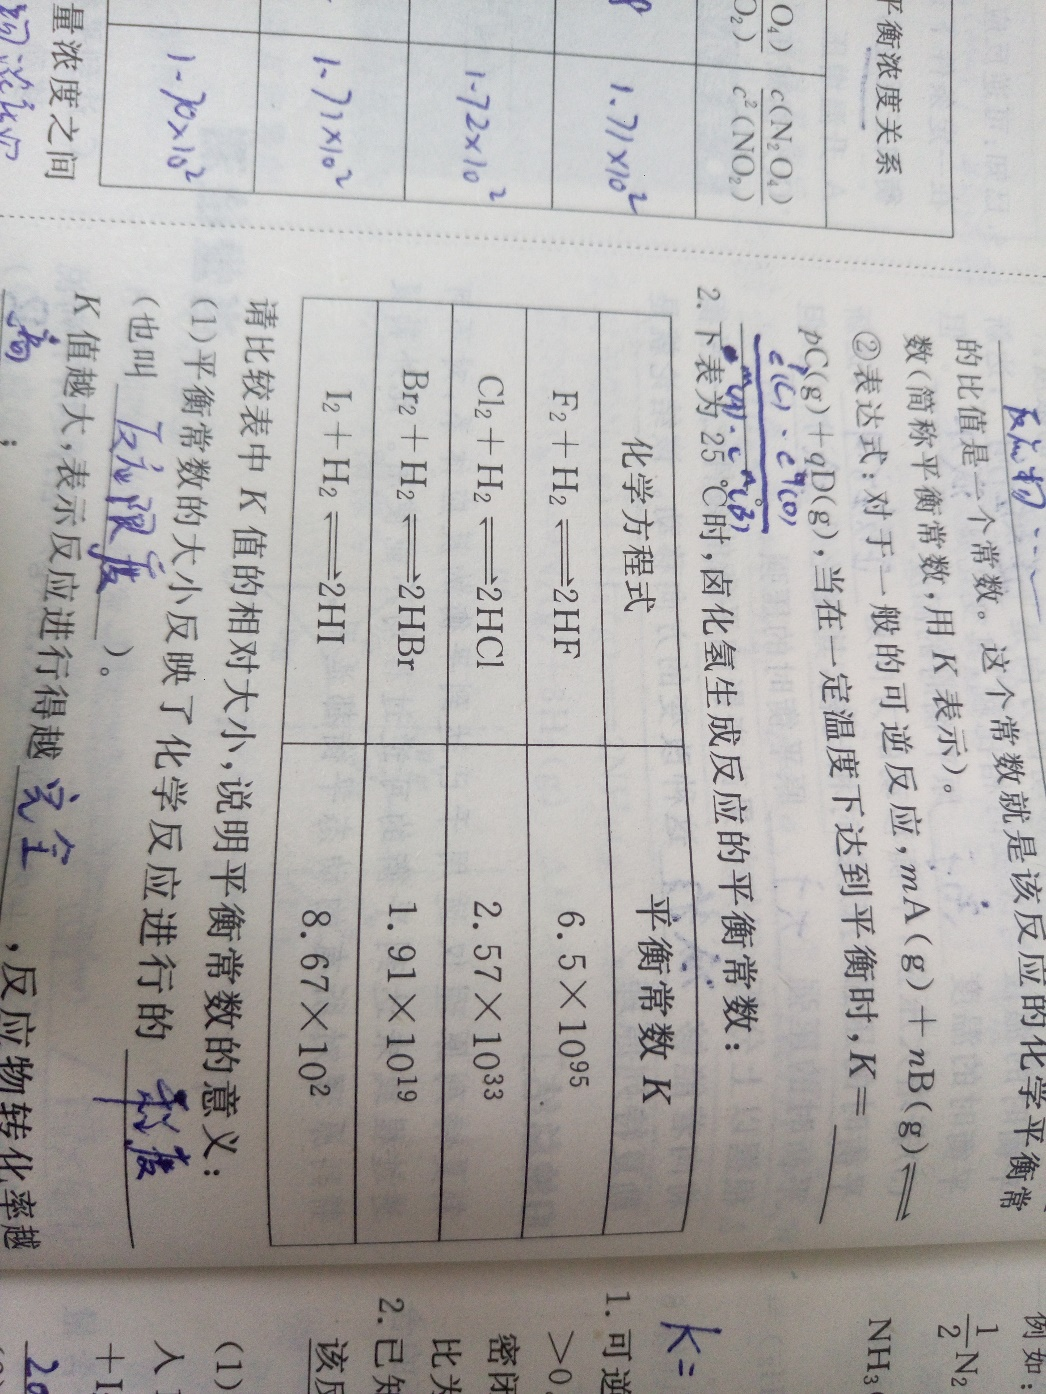 平衡浓度关系
c(N₂O₄)/c²(NO₂)
1.71×10²
1.72×10²
1.71×10²
1.70×10²
量浓度之间
反应物
的比值是一个常数。这个常数就是该反应的化学平衡常
数(简称平衡常数,用 K 表示)。
②表达式:对于一般的可逆反应,mA(g)+nB(g)⇌
pC(g)+qD(g),当在一定温度下达到平衡时,K=
2. 下表为 25 ℃时,卤化氢生成反应的平衡常数:
化学方程式 平衡常数 K
F₂+H₂⇌2HF 6.5×10⁹⁵
Cl₂+H₂⇌2HCl 2.57×10³³
Br₂+H₂⇌2HBr 1.91×10¹⁹
I₂+H₂⇌2HI 8.67×10²
请比较表中 K 值的相对大小,说明平衡常数的意义:
(1)平衡常数的大小反映了化学反应进行的 程度
(也叫 反应限度 )。
K 值越大,表示反应进行得越 完全 ,反应物转化率越
高 ;
例如:
½N₂
NH₃
K=
1. 可逆
>0,
密闭
比为
2. 已知
该反
(1)
入